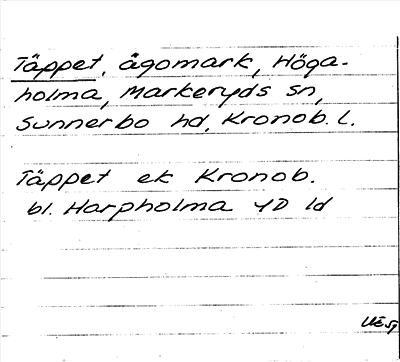 Täppet, ägomark, Höga-
holma, Markaryds sn,
Sunnerbo hd, Kronob. l.
Täppet ek Kronob.
bl. Harpholma 4D ld